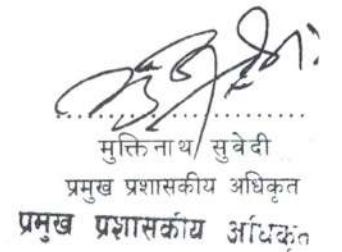 मुक्तिनाथ सुवेदी
प्रमुख प्रशासकीय अधिकृत
प्रमुख प्रशासकीय अधिकृत